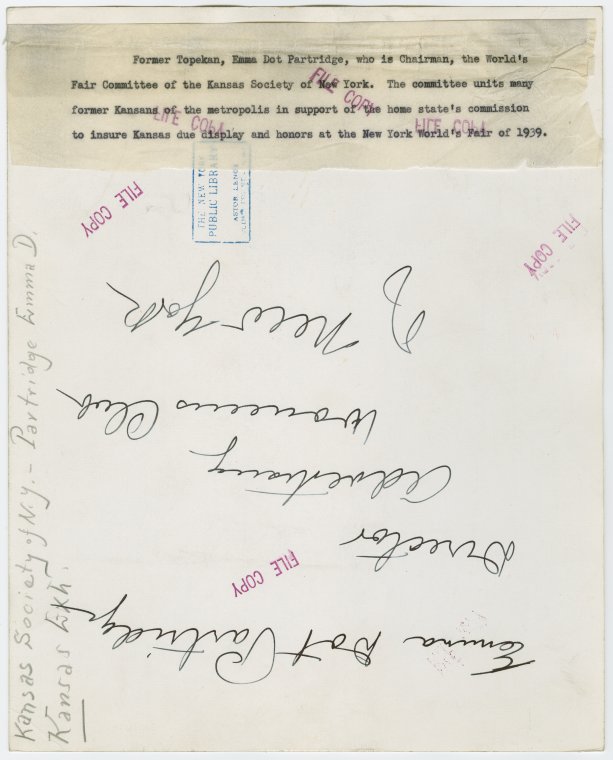 Former Topekan, Emma Dot Partridge, who is Chairman, the World's
Fair Committee of the Kansas Society of New York. The committee units many
former Kansans of the metropolis in support of the home state's commission
to insure Kansas due display and honors at the New York World's Fair of 1939.
FILE COPY
FILE COPY
FILE COPY
THE NEW YORK
PUBLIC LIBRARY
ASTOR LENOX
FILE COPY
FILE COPY
Emma Dot Partridge
Director
Advertising
Womens Club
of New York
FILE COPY
Kansas Society of N.Y. - Partridge Emma D.
Kansas Exh.